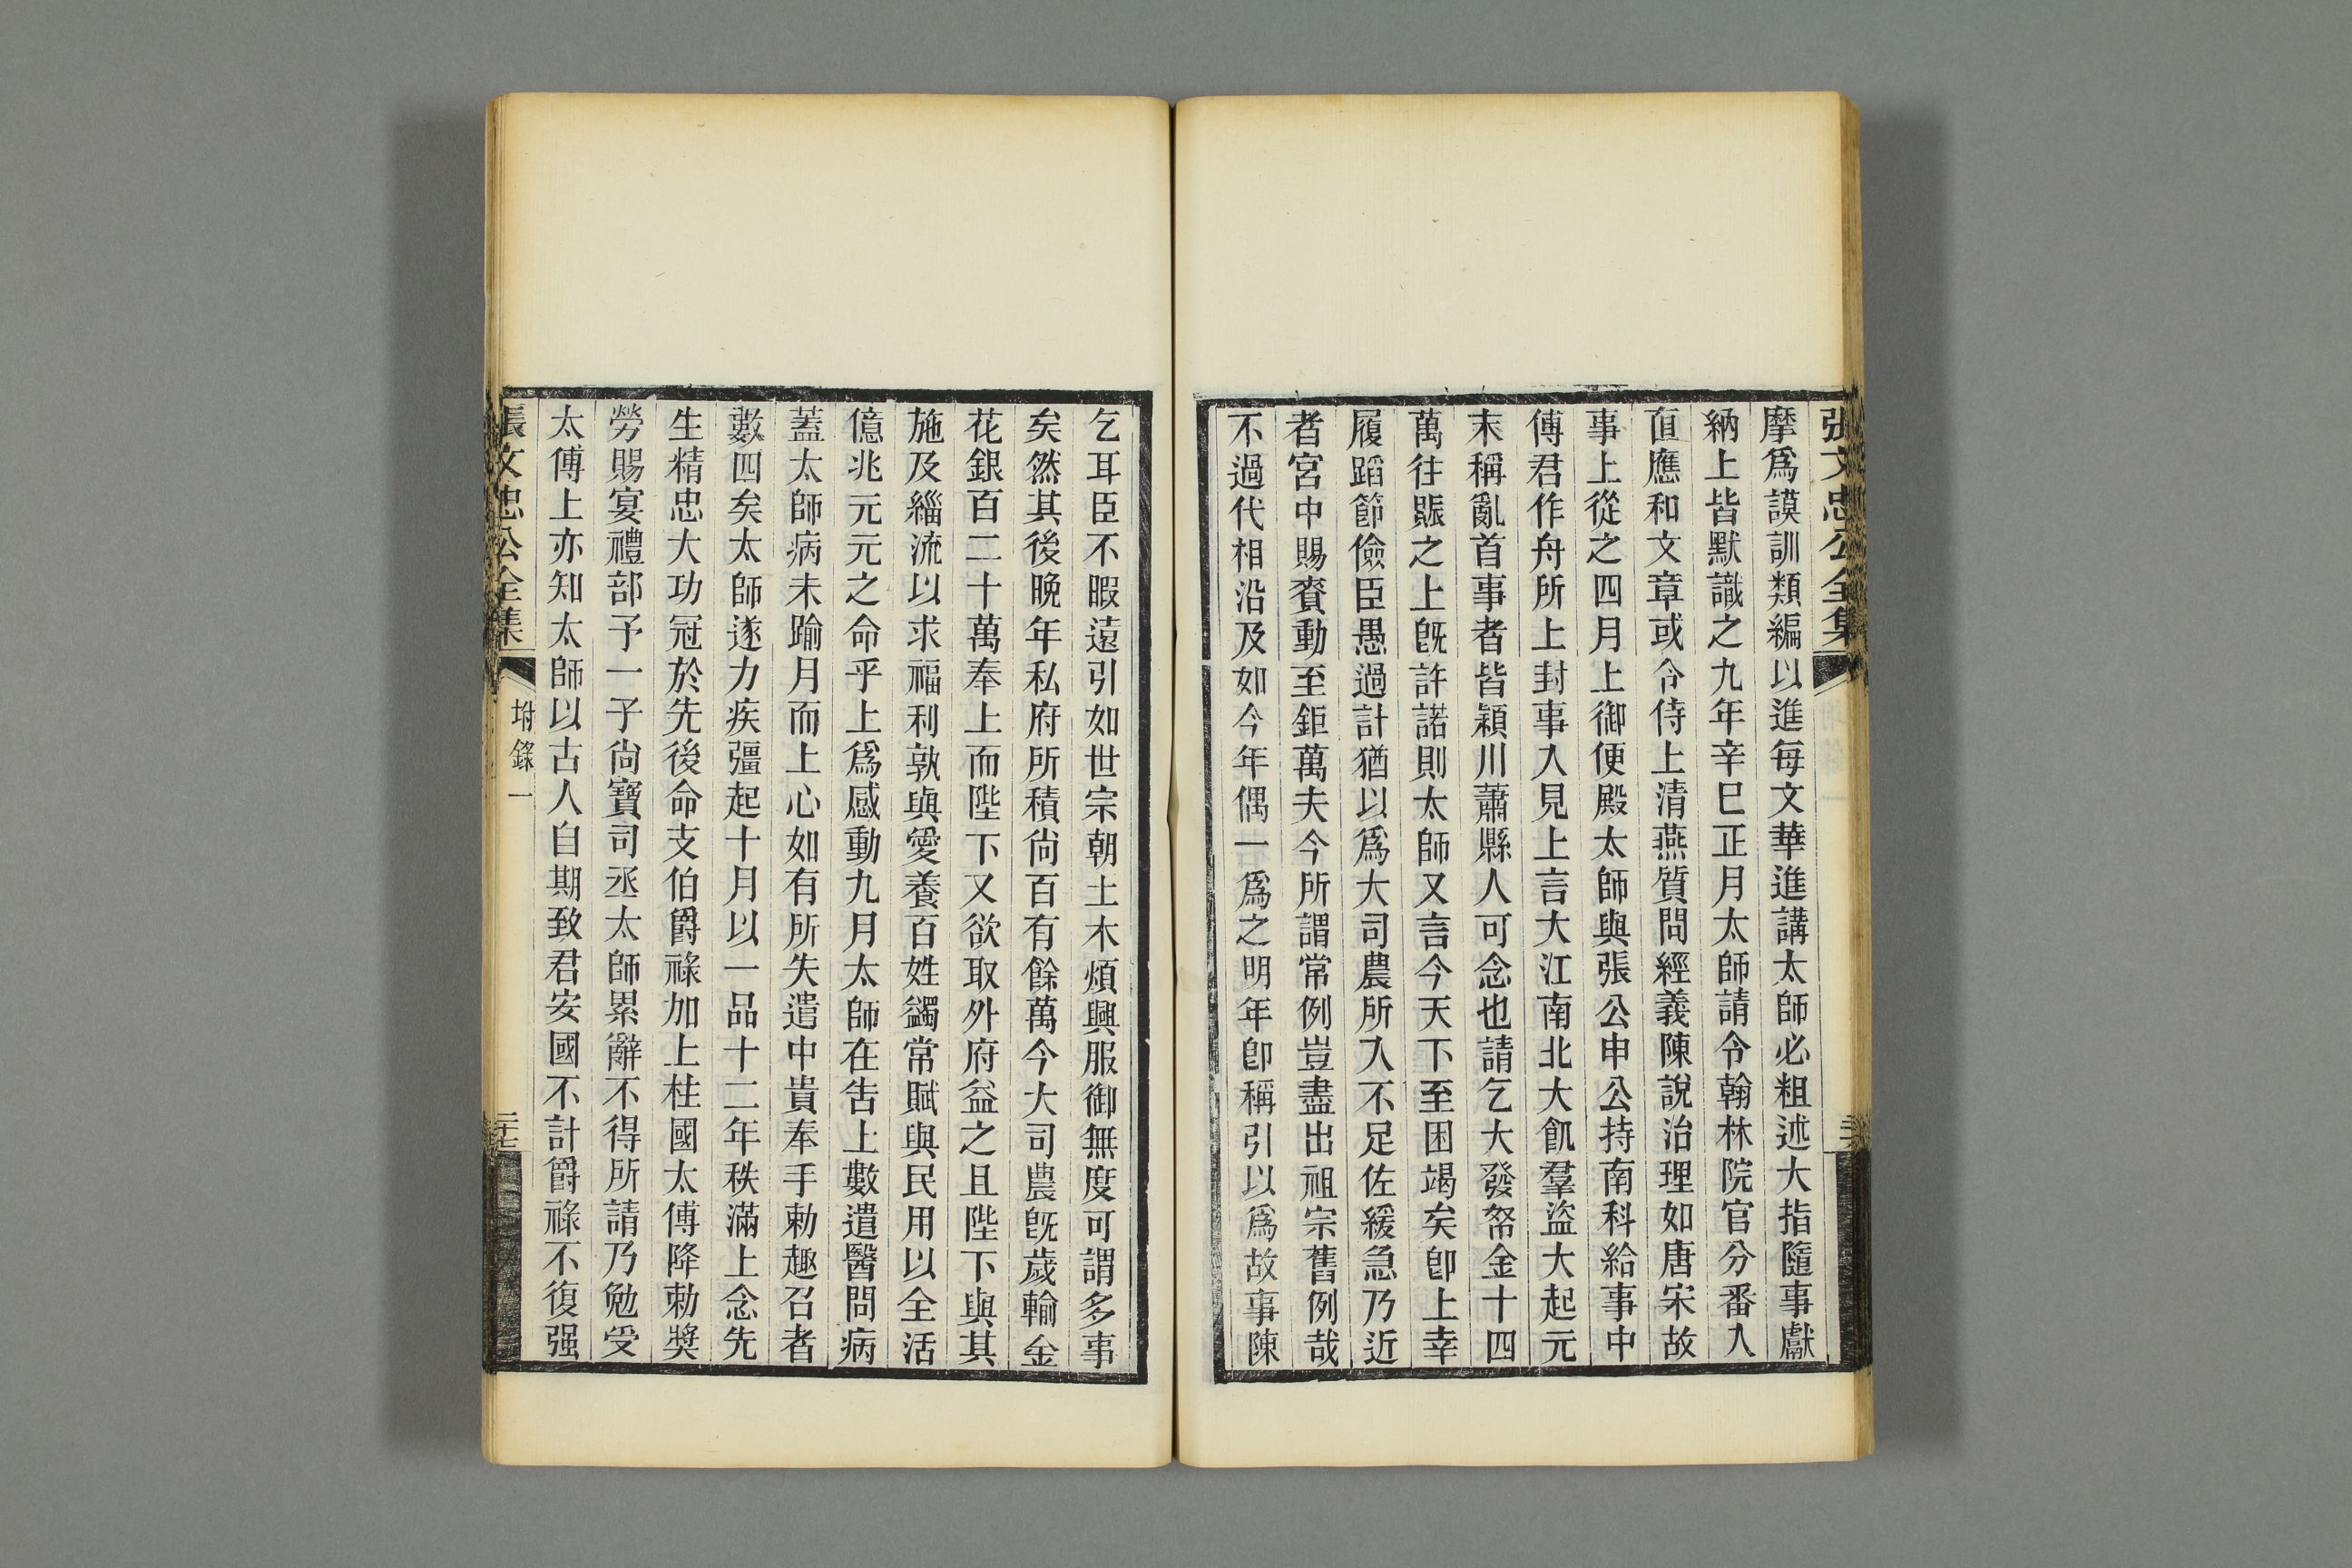 張文忠公全集
摩爲謨訓類編以進每文華進講太師必粗述大指隨事獻
納上皆默識之九年辛巳正月太師請令翰林院官分番入
直應和文章或令侍上清燕質問經義陳說治理如唐宋故
事上從之四月上御便殿太師與張公申公持南科給事中
傅君作舟所上封事入見上言大江南北大飢羣盜大起元
末稱亂首事者皆潁川蕭縣人可念也請乞大發帑金十四
萬往賑之上旣許諾則太師又言今天下至困竭矣卽上幸
履蹈節儉臣愚過計猶以爲大司農所入不足佐緩急乃近
者宮中賜賚動至鉅萬夫今所謂常例豈盡出祖宗舊例哉
不過代相沿及如今年偶一爲之明年卽稱引以爲故事陳
乞耳臣不暇遠引如世宗朝土木煩興服御無度可謂多事
矣然其後晚年私府所積尙百有餘萬今大司農旣歲輸金
花銀百二十萬奉上而陛下又欲取外府益之且陛下與其
施及緇流以求福利孰與愛養百姓蠲常賦與民用以全活
億兆元元之命乎上爲感動九月太師在告上數遣醫問病
蓋太師病未踰月而上心如有所失遣中貴奉手勅趣召者
數四矣太師遂力疾彊起十月以一品十二年秩滿上念先
生精忠大功冠於先後命支伯爵祿加上柱國太傅降勅獎
勞賜宴禮部予一子尙寶司丞太師累辭不得所請乃勉受
太傅上亦知太師以古人自期致君安國不計爵祿不復强
張文忠公全集
坿錄一
二十七